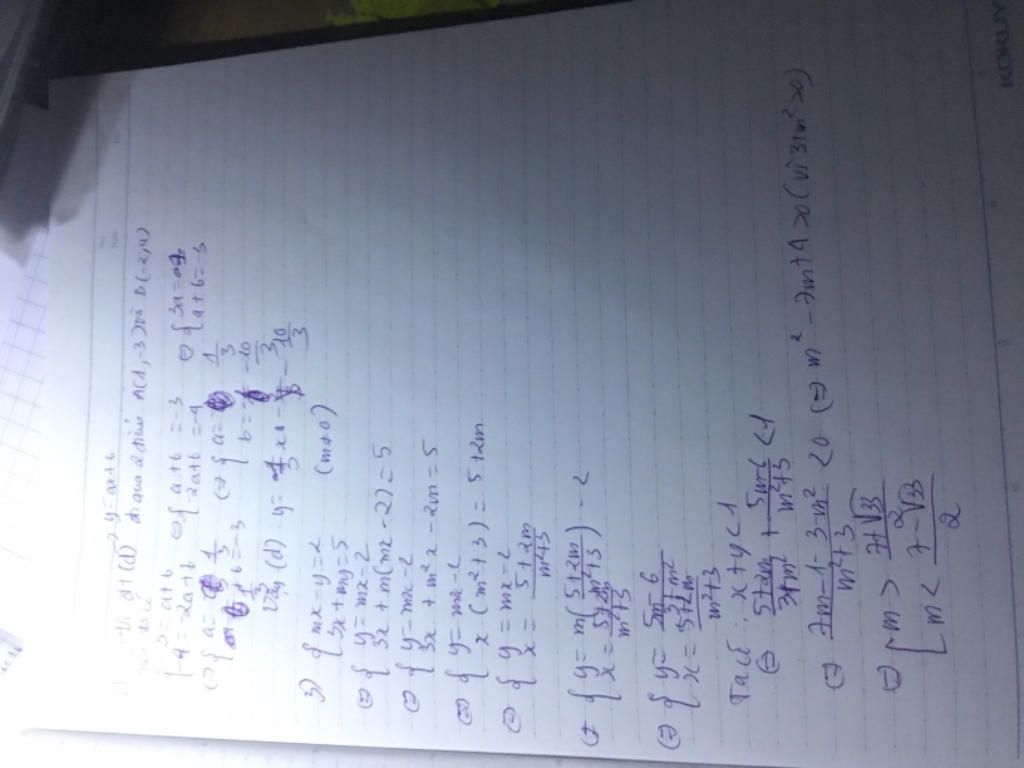 Vì đt (d) y = ax+b
đi qua 2 điểm A(1,-3) và B(-2,-4)
{ -3 = a+b
-4 = -2a+b ⇔ { a+b = -3
-2a+b = -4 ⇔ { 3a = 1
a+b = -3
⇔ { a = 1/3
1/3 + b = -3 ⇔ { a = 1/3
b = -10/3
Vậy (d) y = 1/3 x - 10/3
3) { mx - y = 2
3x + my = 5 (m≠0)
⇔ { y = mx - 2
3x + m(mx - 2) = 5
⇔ { y = mx - 2
3x + m²x - 2m = 5
⇔ { y = mx - 2
x(m²+3) = 5+2m
⇔ { y = mx - 2
x = 5+2m / m²+3
⇔ { y = m(5+2m / m²+3) - 2
x = 5+2m / m²+3
⇔ { y = 5m - 6 / 3+m²
x = 5+2m / m²+3
Ta có : x+y < 1
⇔ 5+2m / 3+m² + 5m-6 / m²+3 < 1
⇔ 7m - 1 - 3 - m² / m²+3 < 0 ⇔ m² - 7m + 4 > 0 (vì 3+m² > 0)
⇔ [ m > 7+√33 / 2
m < 7-√33 / 2
KOKUY